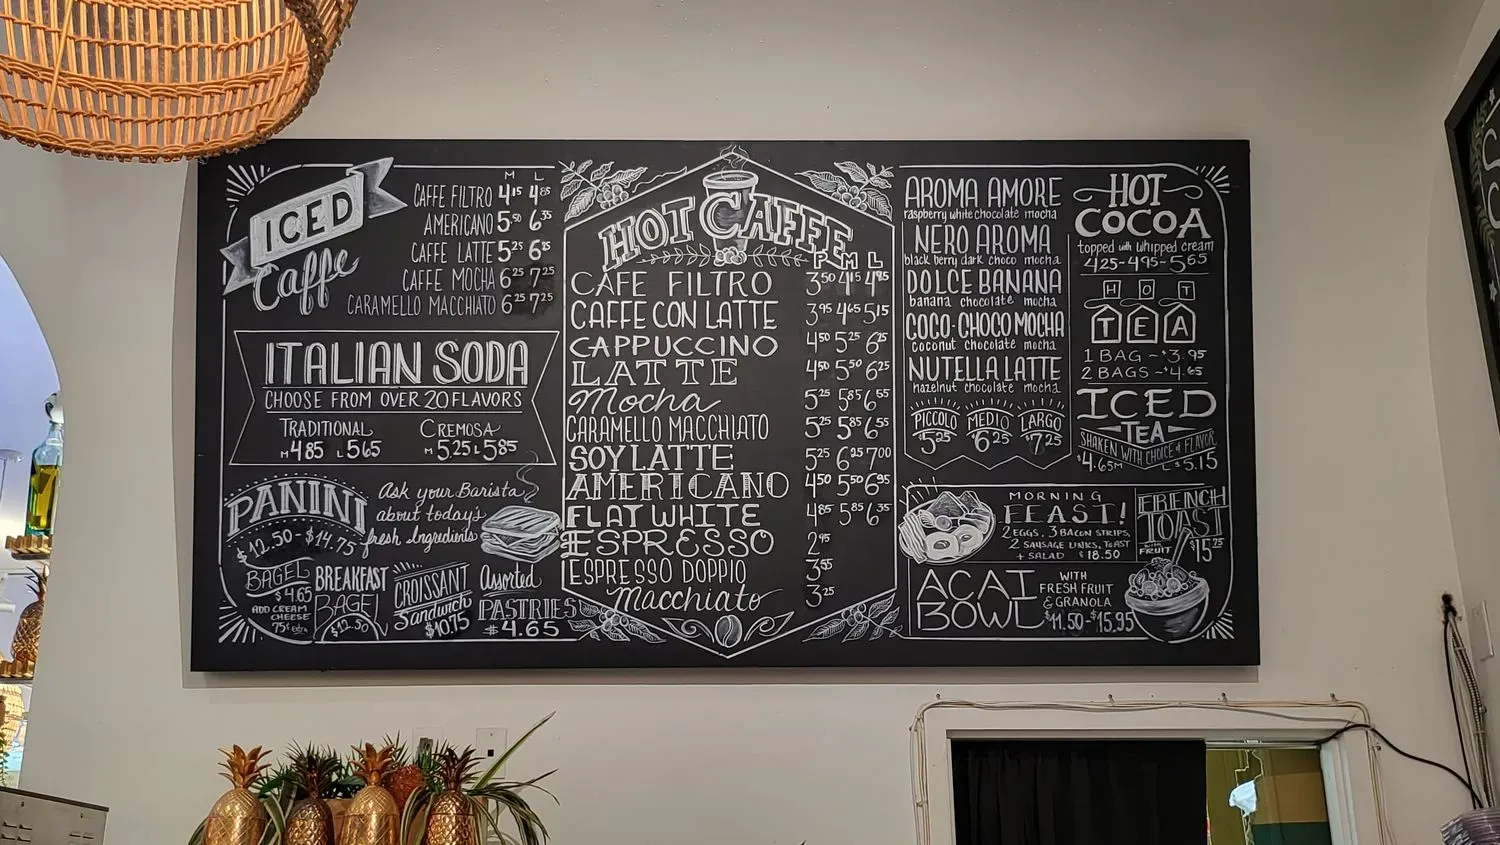 ICED
Caffe
M L
CAFFE FILTRO 4.15 4.85
AMERICANO 5.50 6.35
CAFFE LATTE 5.25 6.25
CAFFE MOCHA 6.25 7.25
CARAMELLO MACCHIATO 6.25 7.25
ITALIAN SODA
CHOOSE FROM OVER 20 FLAVORS
TRADITIONAL
M 4.85 L 5.65
CREMOSA
M 5.25 L 5.85
PANINI
$12.50-$14.75
Ask your Barista
about today's
fresh Ingredients
BAGEL
$4.65
ADD CREAM
CHEESE
75¢ Extra
BREAKFAST
BAGEL
$12.50
CROISSANT
Sandwich
$10.75
Assorted
PASTRIES
$4.65
HOT CAFFE
P M L
CAFE FILTRO 3.50 4.15 4.95
CAFFE CON LATTE 3.95 4.65 5.15
CAPPUCCINO 4.50 5.25 6.25
LATTE 4.50 5.50 6.25
Mocha 5.25 5.85 6.55
CARAMELLO MACCHIATO 5.25 5.85 6.55
SOY LATTE 5.25 6.25 7.00
AMERICANO 4.50 5.50 6.95
FLAT WHITE 4.85 5.85 6.35
ESPRESSO 2.95
ESPRESSO DOPPIO 3.55
Macchiato 3.25
AROMA AMORE
raspberry white chocolate mocha
NERO AROMA
black berry dark choco mocha
DOLCE BANANA
banana chocolate mocha
COCO-CHOCO MOCHA
coconut chocolate mocha
NUTELLA LATTE
hazelnut chocolate mocha
PICCOLO MEDIO LARGO
$5.25 $6.25 $7.25
HOT
COCOA
topped with whipped cream
4.25-4.95-5.65
HOT
TEA
1 BAG ~ $3.95
2 BAGS ~ $4.65
ICED
TEA
SHAKEN WITH CHOICE of FLAVOR
$4.65 M L $5.15
MORNING
FEAST!
2 EGGS, 3 BACON STRIPS,
2 SAUSAGE LINKS, TOAST
+ SALAD $18.50
FRENCH
TOAST
WITH
FRUIT
$15.25
ACAI
BOWL
WITH
FRESH FRUIT
& GRANOLA
$11.50-$15.95